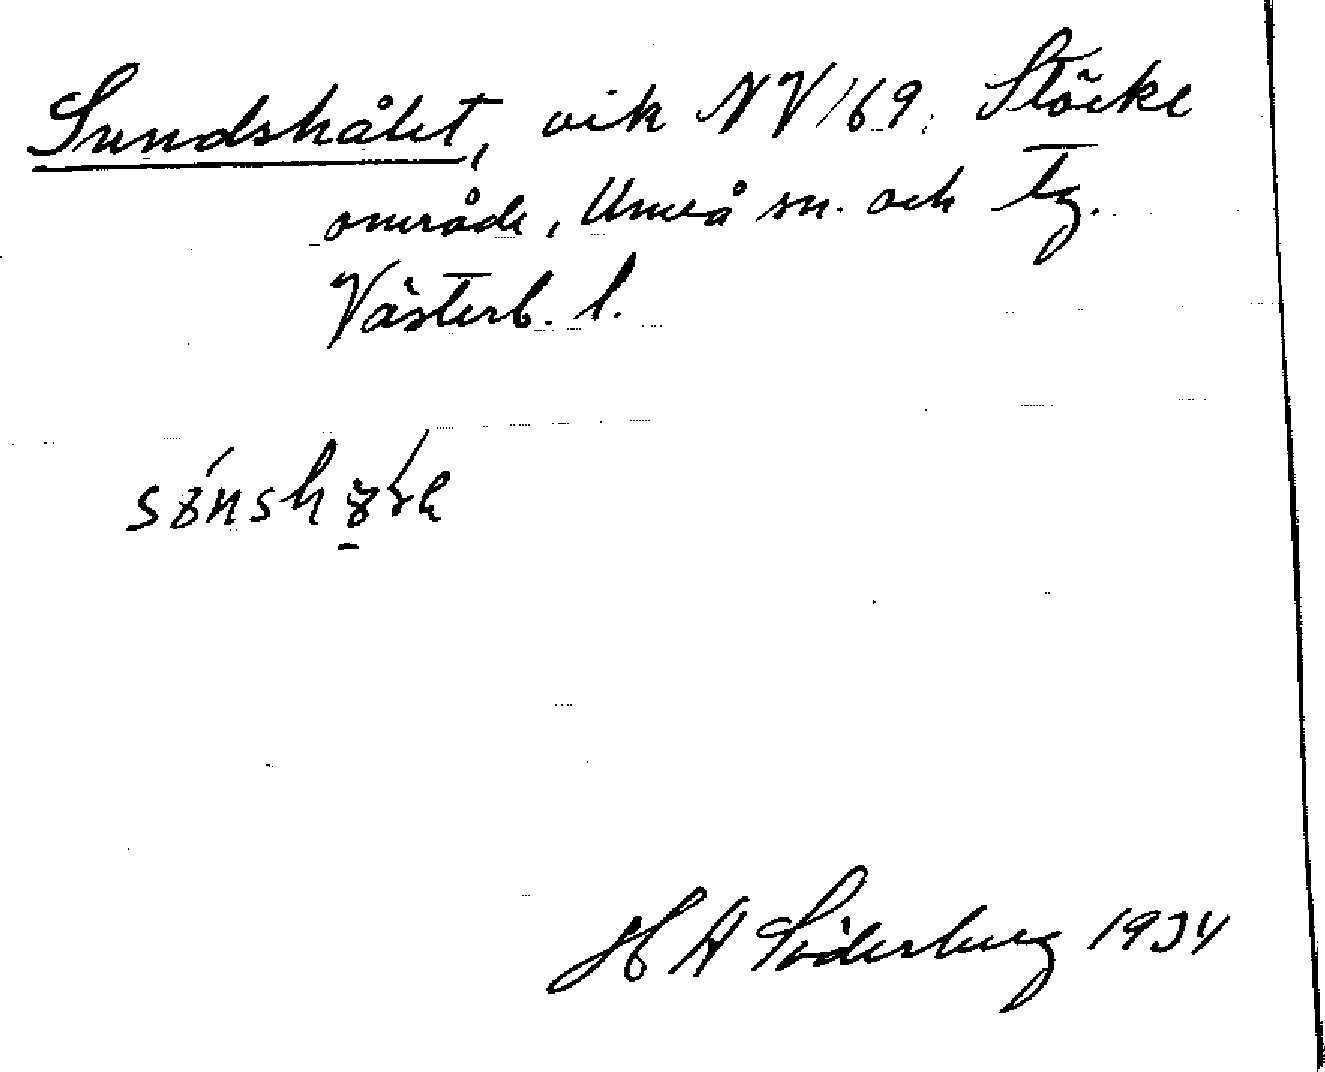 Sundshålet, vik NV/69, Stöcke
område, Umeå sn. och tg.
Västerb. l.
H A Söderberg 1934